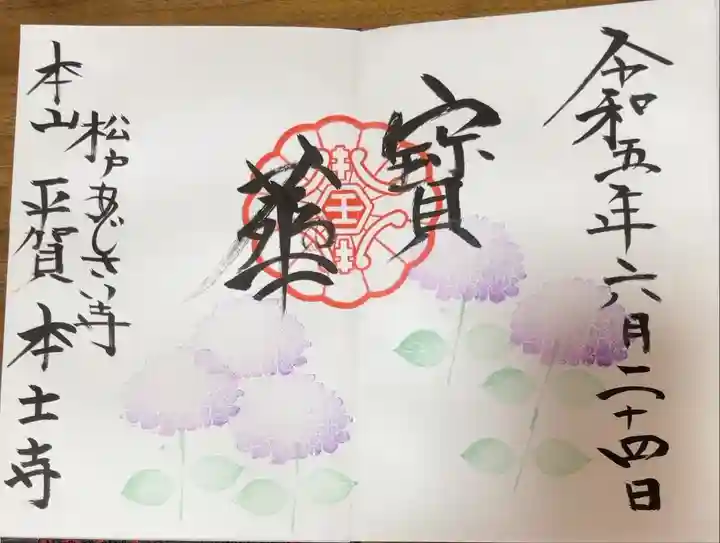 令和五年六月二十四日
寳華
松戸あじさい寺
本山 平賀 本土寺